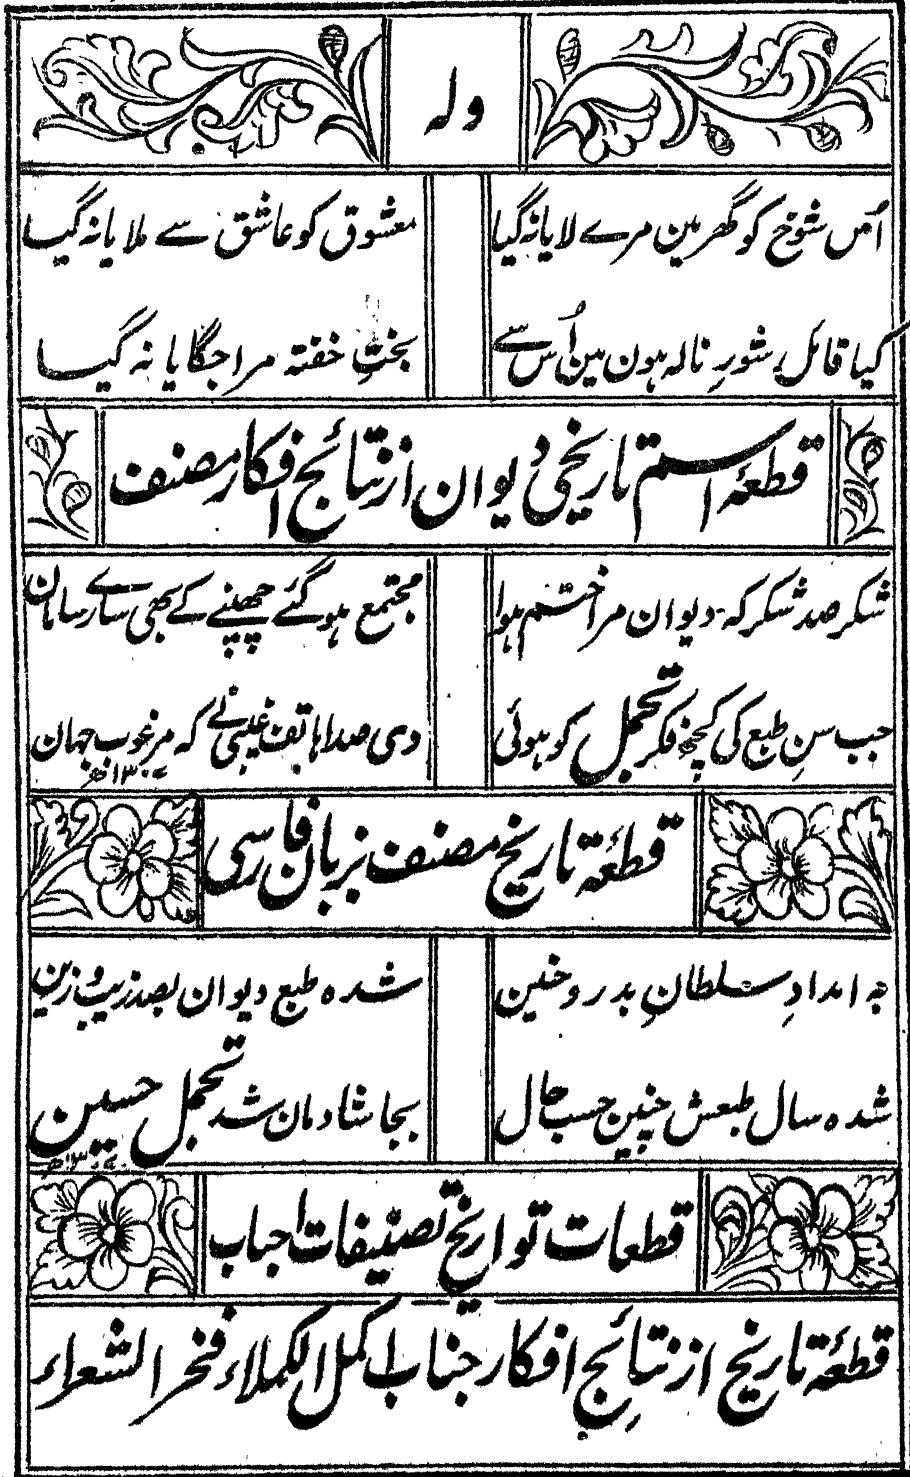 ولہ
اُس شوخ کو گھر مین مرے لایا نہ گیا
معشوق کو عاشق سے ملایا نہ گیا
کیا قائل شورِ نالہ ہون مین اُس سے
بختِ خفتہ مرا جگایا نہ گیا
قطعۂ اسم تاریخی دیوان از نتائج افکار مصنف
شکر صد شکر کہ دیوان مرا ختم ہوا
مجتمع ہو گئے چھپنے کے بھی سارے سامان
جب سنِ طبع کی کچھ فکر تجمل کو ہوئی
دی صدا ہاتف غیبی نے کہ مرغوب جہان
قطعۂ تاریخ مصنف بزبان فارسی
بہ امدادِ سلطانِ بدر و حنین
شدہ طبع دیوان بصد زیب و زین
شدہ سال طبعش چنین حسب حال
بجا شادمان شد تجمل حسین
قطعات تواریخ تصنیفات احباب
قطعۂ تاریخ از نتائجِ افکار جناب اکمل الکملاء فخر الشعراء